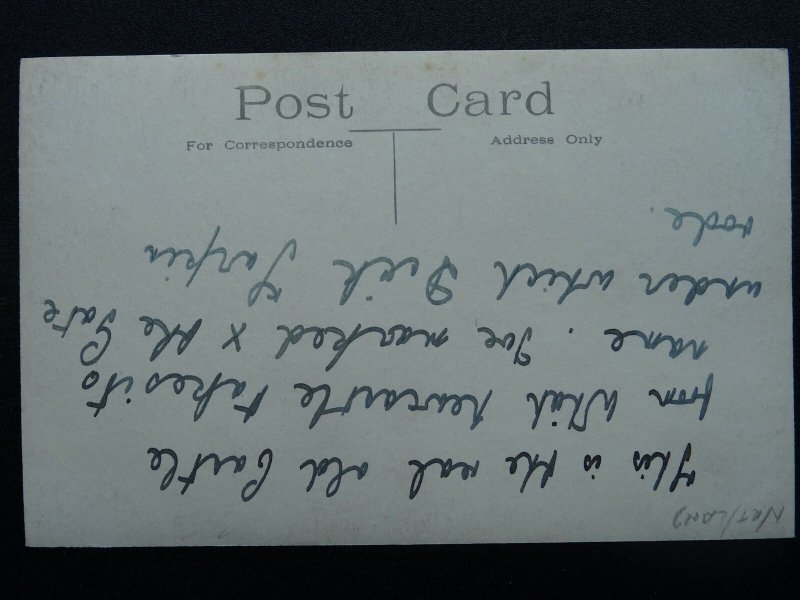 Post Card
For Correspondence
Address Only
This is the real old Castle
from which Newcastle takes its
name. I've marked x the Gate
under which Dick Turpin
rode.